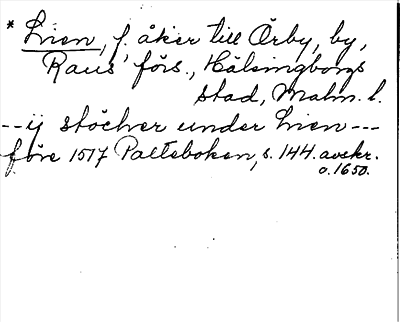 * Lien, f. åker till Örby, by,
Raus förs., Hälsingborgs
stad, Malm. l.
--ij stöcher under Lien---
före 1517 Palteboken, s. 144. avskr.
o. 1650.